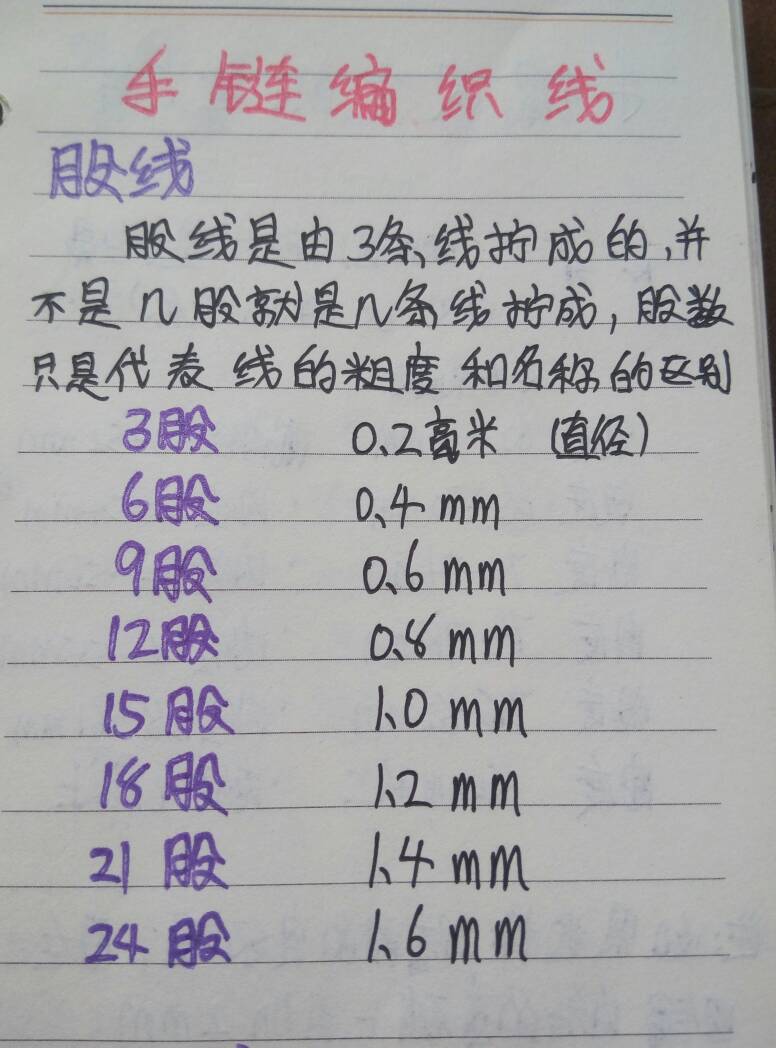 手链编织线
股线
股线是由3条线拧成的,并
不是几股就是几条线拧成,股数
只是代表线的粗度和名称的区别
3股 0.2毫米 (直径)
6股 0.4mm
9股 0.6mm
12股 0.8mm
15股 1.0mm
18股 1.2mm
21股 1.4mm
24股 1.6mm